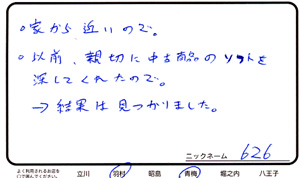 。家から近いので。
。以前、親切に中古商品のソフトを
深してくれたので。
→結果は見つかりました。
ニックネーム 626
よく利用されるお店を
○で囲んでください。 立川 羽村 昭島 青梅 堀之内 八王子